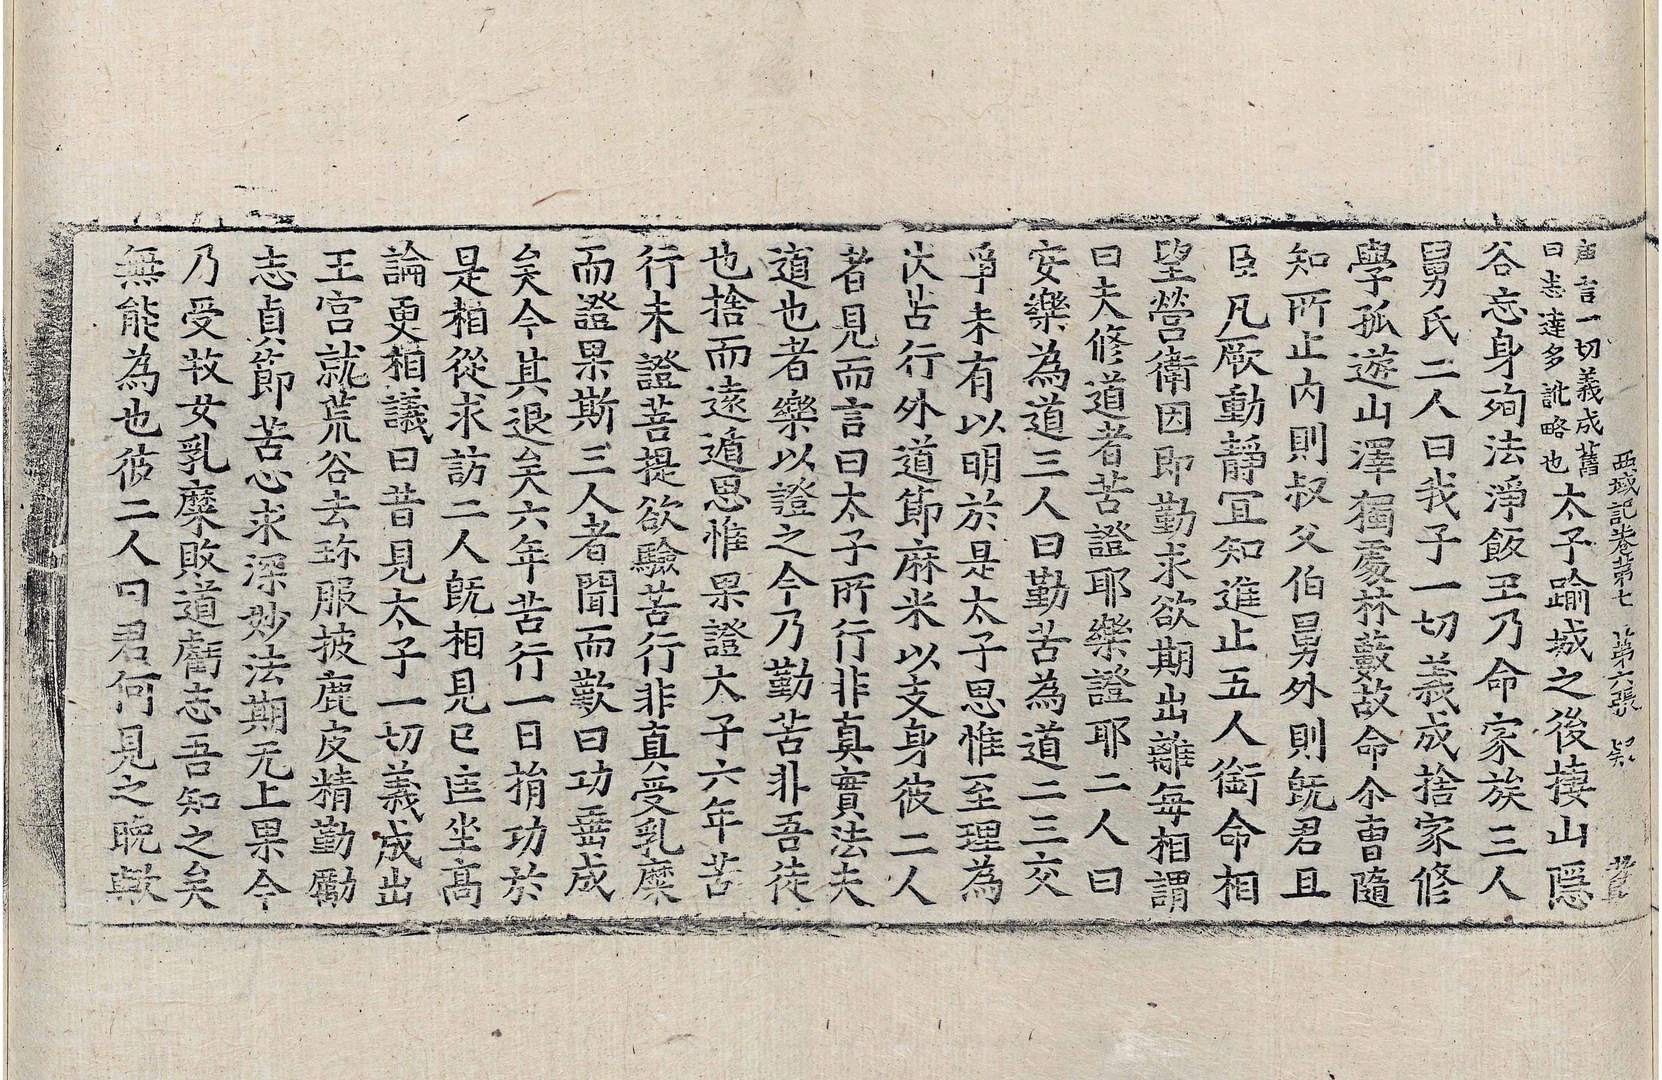 西域記卷第七 第六張 疑
唐言一切義成舊
曰悉達多訛略也
太子踰城之後棲山隱
谷忘身殉法淨飯王乃命家族三人
舅氏二人曰我子一切義成捨家修
學孤遊山澤獨處林藪故命尒曹隨
知所止內則叔父伯舅外則既君且
臣凡厥動靜冝知進止五人銜命相
望營衛因即勤求欲期出離每相謂
曰夫修道者苦證耶樂證耶二人曰
安樂為道三人曰勤苦為道二三交
爭未有以明於是太子思惟至理為
伏苦行外道節麻米以支身彼二人
者見而言曰太子所行非真實法夫
道也者樂以證之今乃勤苦非吾徒
也捨而遠遁思惟果證太子六年苦
行未證菩提欲驗苦行非真受乳糜
而證果斯三人者聞而歎曰功垂成
矣今其退矣六年苦行一日捐功於
是相從求訪二人既相見已匡坐高
論更相議曰昔見太子一切義成出
王宮就荒谷去珎服披鹿皮精勤勵
志貞節苦心求深妙法期无上果今
乃受牧女乳糜敗道虧志吾知之矣
無能為也彼二人曰君何見之晚歟